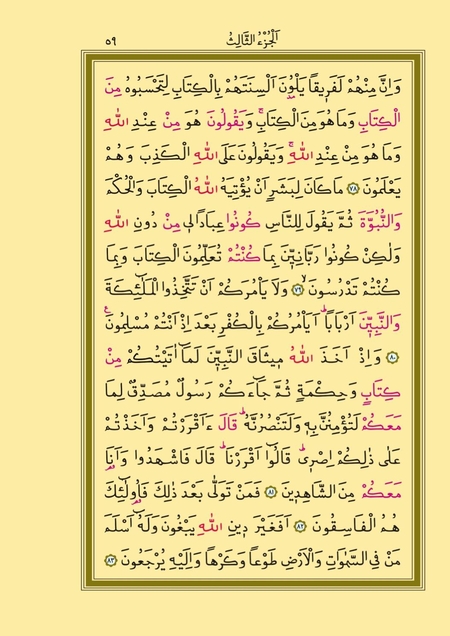 اَلْجُزْءُ الثَّالِثُ ٥٩
وَاِنَّ مِنْهُمْ لَفَرٖيقًا يَلْوُ۫نَ اَلْسِنَتَهُمْ بِالْكِتَابِ لِتَحْسَبُوهُ مِنَ
الْكِتَابِ وَمَا هُوَ مِنَ الْكِتَابِۚ وَيَقُولُونَ هُوَ مِنْ عِنْدِ اللّٰهِ
وَمَا هُوَ مِنْ عِنْدِ اللّٰهِۚ وَيَقُولُونَ عَلَى اللّٰهِ الْكَذِبَ وَهُمْ
يَعْلَمُونَ ﴿٧٨﴾ مَا كَانَ لِبَشَرٍ اَنْ يُؤْتِيَهُ اللّٰهُ الْكِتَابَ وَالْحُكْمَ
وَالنُّبُوَّةَ ثُمَّ يَقُولَ لِلنَّاسِ كُونُوا عِبَادًا لٖى مِنْ دُونِ اللّٰهِ
وَلٰكِنْ كُونُوا رَبَّانِيّٖنَ بِمَا كُنْتُمْ تُعَلِّمُونَ الْكِتَابَ وَبِمَا
كُنْتُمْ تَدْرُسُونَۙ ﴿٧٩﴾ وَلَا يَاْمُرَكُمْ اَنْ تَتَّخِذُوا الْمَلٰٓئِكَةَ
وَالنَّبِيّٖنَ اَرْبَابًاۜ اَيَاْمُرُكُمْ بِالْكُفْرِ بَعْدَ اِذْ اَنْتُمْ مُسْلِمُونَ۟
﴿٨٠﴾ وَاِذْ اَخَذَ اللّٰهُ مٖيثَاقَ النَّبِيّٖنَ لَمَٓا اٰتَيْتُكُمْ مِنْ
كِتَابٍ وَحِكْمَةٍ ثُمَّ جَٓاءَكُمْ رَسُولٌ مُصَدِّقٌ لِمَا
مَعَكُمْ لَتُؤْمِنُنَّ بِهٖ وَلَتَنْصُرُنَّهُۜ قَالَ ءَاَقْرَرْتُمْ وَاَخَذْتُمْ
عَلٰى ذٰلِكُمْ اِصْرٖىۜ قَالُٓوا اَقْرَرْنَاۜ قَالَ فَاشْهَدُوا وَاَنَا۬
مَعَكُمْ مِنَ الشَّاهِدٖينَ ﴿٨١﴾ فَمَنْ تَوَلّٰى بَعْدَ ذٰلِكَ فَاُو۬لٰٓئِكَ
هُمُ الْفَاسِقُونَ ﴿٨٢﴾ اَفَغَيْرَ دٖينِ اللّٰهِ يَبْغُونَ وَلَهُٓ اَسْلَمَ
مَنْ فِى السَّمٰوَاتِ وَالْاَرْضِ طَوْعًا وَكَرْهًا وَاِلَيْهِ يُرْجَعُونَ ﴿٨٣﴾